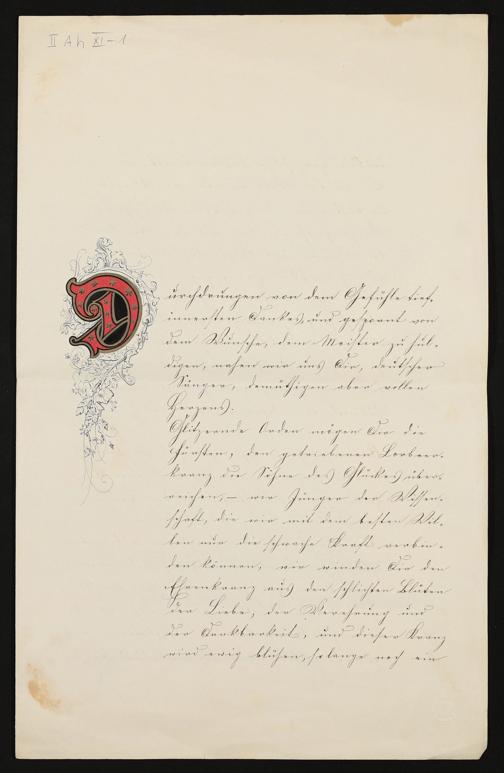 II A h XI-1
Durchdrungen von dem Gefühle tief-
innersten Dankes, und gespornt von
dem Wunsche, dem Meister zu hul-
digen, nahen wir uns Dir, deutscher
Sänger, demüthigen aber vollen
Herzens.
Glitzernde Orden mögen Dir die
Fürsten, den getriebenen Lorbeer-
kranz die Söhne des Glückes über-
reichen, – wir Jünger der Wissen-
schaft, die wir mit dem besten Wil-
len nur die schwache Kraft verbin-
den können, wir winden Dir den
Ehrenkranz aus den schlichten Blüten
der Liebe, der Verehrung und
der Dankbarkeit, und dieser Kranz
wird ewig blühen, solange noch ein